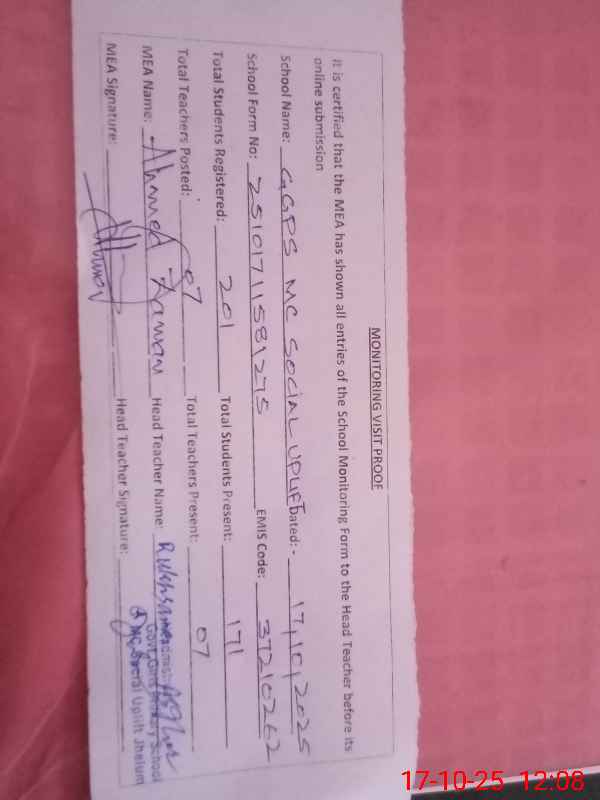 MONITORING VISIT PROOF
It is certified that the MEA has shown all entries of the School Monitoring Form to the Head Teacher before its
online submission
School Name: GGPS MC SOCIAL UPLIFT Dated: - 17/10/2025
School Form No: 2510171158 1275 EMIS Code: 37210262
Total Students Registered: 201 Total Students Present: 171
Total Teachers Posted: 07 Total Teachers Present: 07
MEA Name: Ahmed Zaman Head Teacher Name:
MEA Signature: Head Teacher Signature:
Govt. Girls Primary School
MC Social Uplift Jhelum
17-10-25 12:08